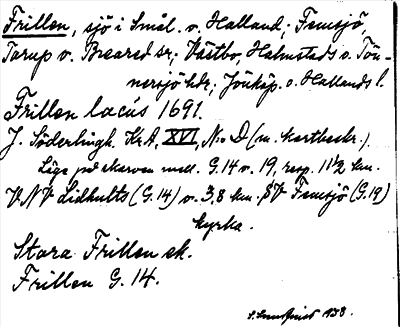 Frillen, sjö i Smål. o. Halland; Femsjö,
Torup o. Breared snr; Västbo, Halmstads o. Tön-
nersjö hdr; Jönköp. o. Hallands l.
Frillen lacus 1691.
J. Söderlingh. KrA, XVI, N:o D (m. kartbeskr.).
Läge på skarven mell. G.14 o. 19, resp. 11 1/2 km.
VNV Lidhults (G.14) o. 3,8 km. SV Femsjö (G.19)
kyrka.
Stora Frillen ek.
Frillen G. 14.
1938.